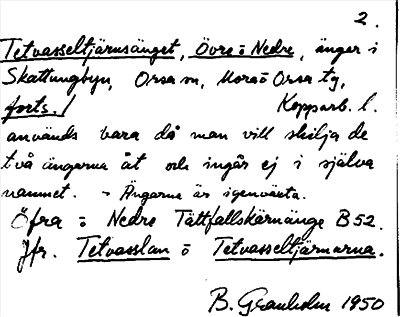 2.
Tetvasseltjärnsänget, Övre o Nedre, änger i
Skattungbyn, Orsa sn, Mora o Orsa tg,
forts. / Kopparb. l.
används bara då man vill skilja de
två ängarna åt och ingår ej i själva
namnet. - Ängarna är igenväxta.
Öfra o Nedre Tättfallskärnänge B 52.
Jfr. Tetvasslan o Tetvasseltjärnarna.
B. Granholm 1950